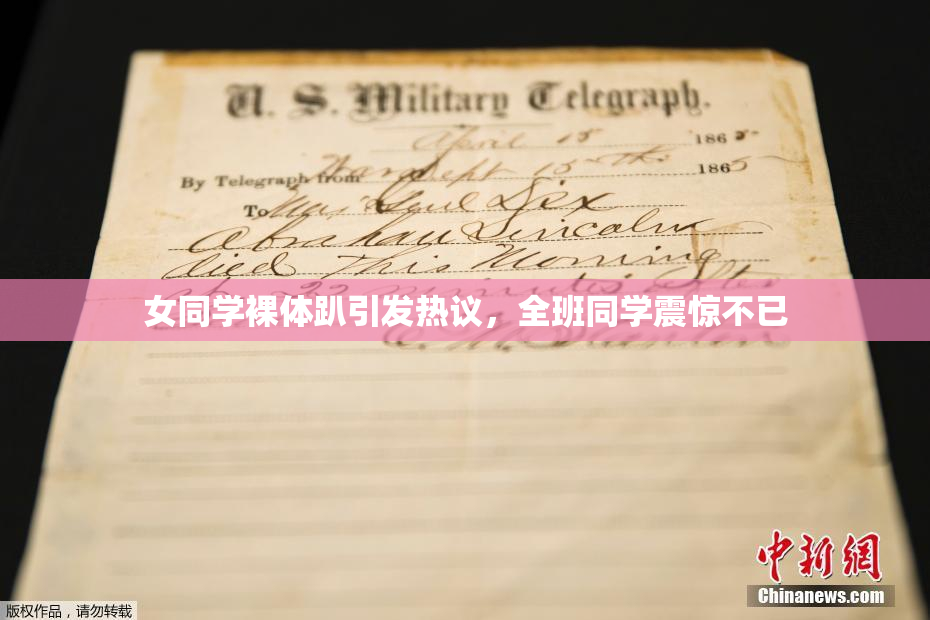 U. S. Military Telegraph.
April 15 1865
By Telegraph from War Dept 15th 1865
To Maj Genl Dix
Abraham Lincoln
died This Morning
22 minutes after
女同学裸体趴引发热议，全班同学震惊不已
中新网
Chinanews.com
版权作品，请勿转载